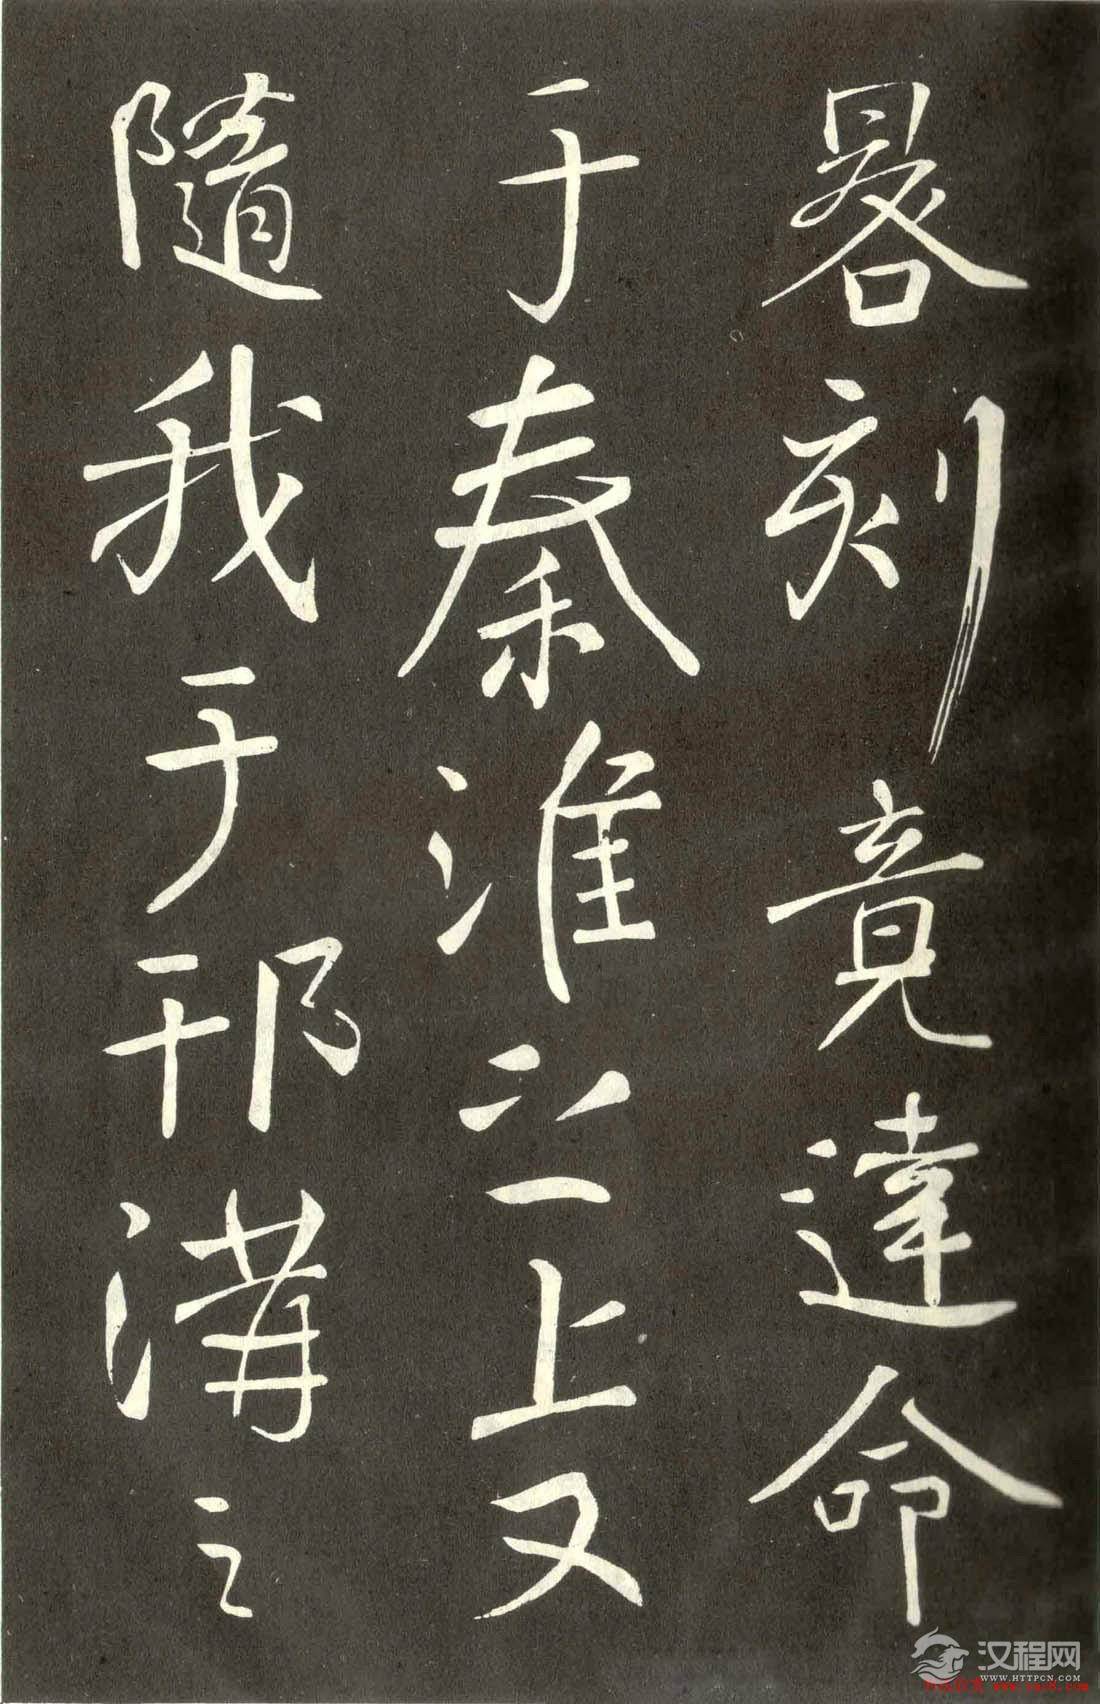 晷刻竟達命
于秦淮之上又
隨我于邗溝之
汉程网
WWW.HTTPCN.COM